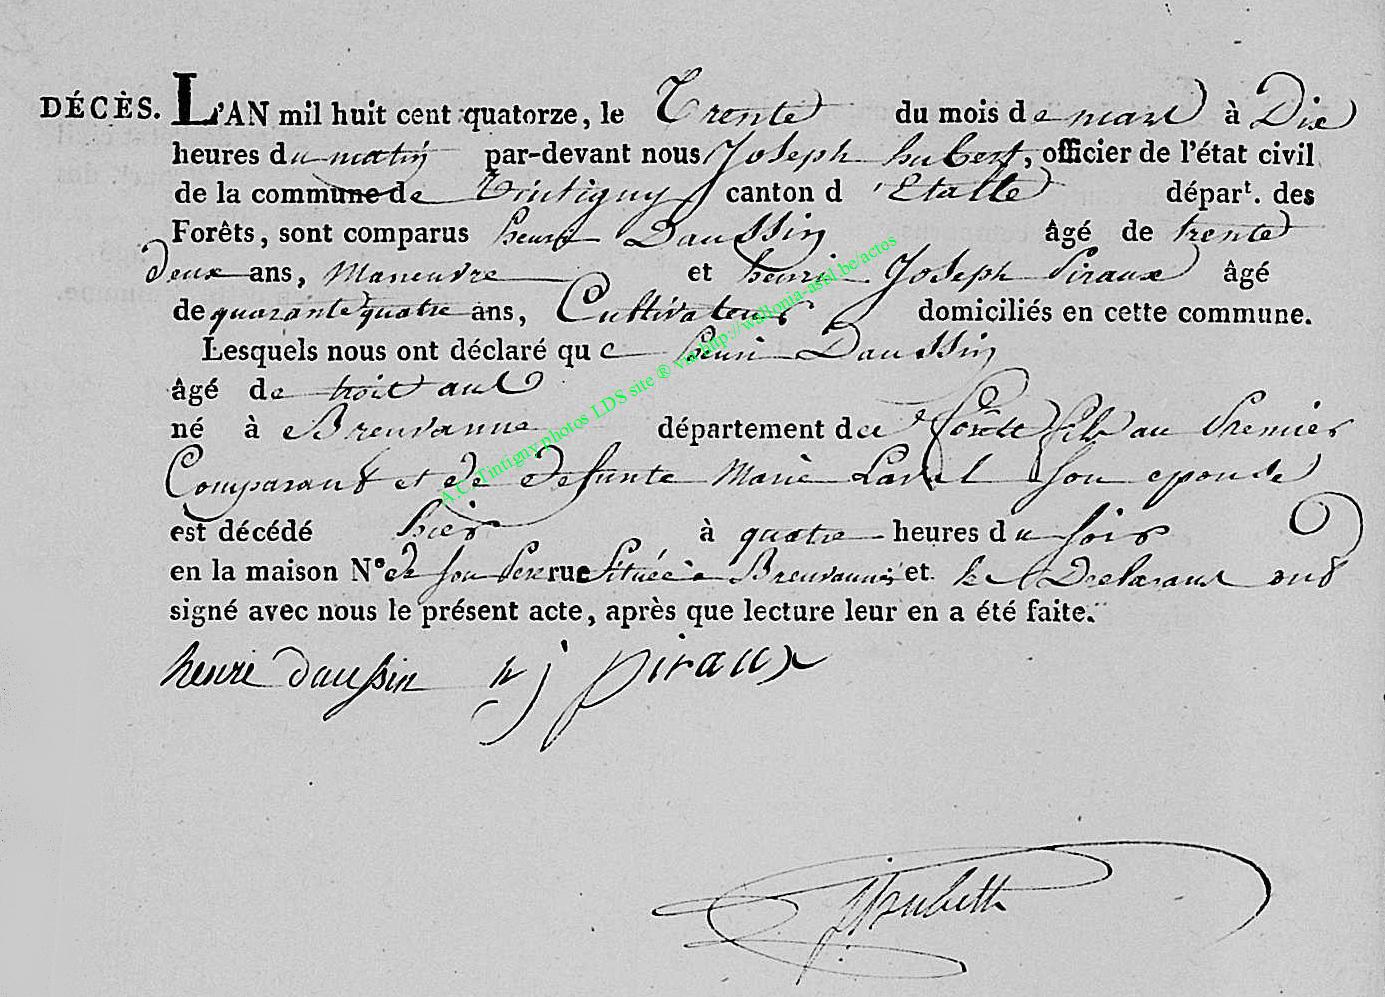 DÉCÈS. L'AN mil huit cent quatorze, le Trente du mois de mars à Dix
heures du matin par-devant nous Joseph hubert, officier de l'état civil
de la commune de Tintigny canton d'Etalle départ. des
Forêts, sont comparus henri Daussin âgé de trente
deux ans, Maneuvre et henri Joseph Piraux âgé
de quarante quatre ans, Cultivateur domiciliés en cette commune.
Lesquels nous ont déclaré que henri Daussin
âgé de trois ans
né à Breuvanne département des forêts fils au Premier
Comparant et de Defunte Marie son epouse
est décédé hier à quatre heures du soir
en la maison N° de son Pere rue Située à Breuvanne et les Declarans ont
signé avec nous le présent acte, après que lecture leur en a été faite.
henri daussin h j piraux
A.C. Tintigny photos LDS site ® via http://wallonia-asbl.be/actos